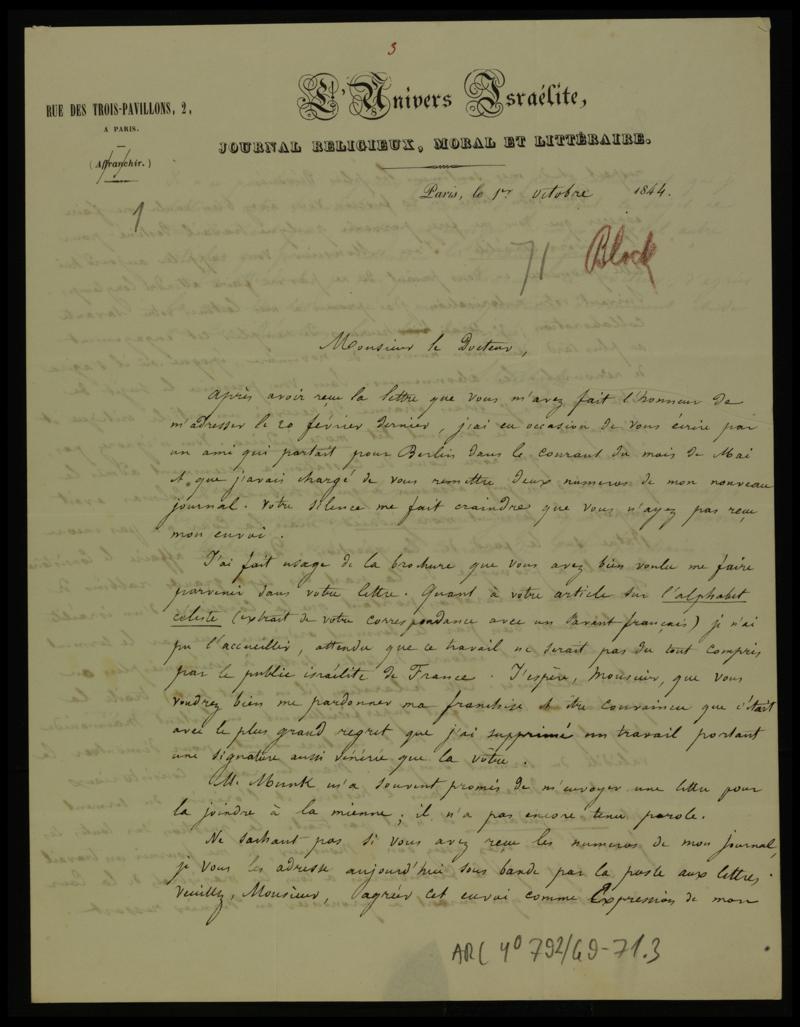 3
L'Univers Israélite,
RUE DES TROIS-PAVILLONS, 2,
A PARIS.
(Affranchir.)
JOURNAL RELIGIEUX, MORAL ET LITTÉRAIRE.
Paris, le 1er octobre 1844.
1
71 Block
Monsieur le Docteur,
Après avoir reçu la lettre que vous m'avez fait l'honneur de
m'adresser le 20 février dernier, j'ai eu occasion de vous écrire par
un ami qui partait pour Berlin dans le courant du mois de Mai
et que j'avais chargé de vous remettre deux numeros de mon nouveau
journal. Votre silence me fait craindre que vous n'ayez pas reçu
mon envoi.
J'ai fait usage de la brochure que vous avez bien voulu me faire
parvenir dans votre lettre. Quant à votre article sur l'alphabet
céleste (extrait de votre correspondance avec un savant français) je n'ai
pu l'accueillir, attendu que ce travail ne serait pas du tout compris
par le public israélite de France. J'espère, Monsieur, que vous
voudrez bien me pardonner ma franchise et être convaincu que c'était
avec le plus grand regret que j'ai supprimé un travail portant
une signature aussi vénérée que la votre.
M. Munk m'a souvent promis de m'envoyer une lettre pour
la joindre à la mienne; il n'a pas encore tenu parole.
Ne sachant pas si vous avez reçu les numeros de mon journal,
je vous les adresse aujourd'hui sous bande par la poste aux lettres.
Veuillez, Monsieur, agréer cet envoi comme Expression de mon
ARC 4° 792/G9-71.3